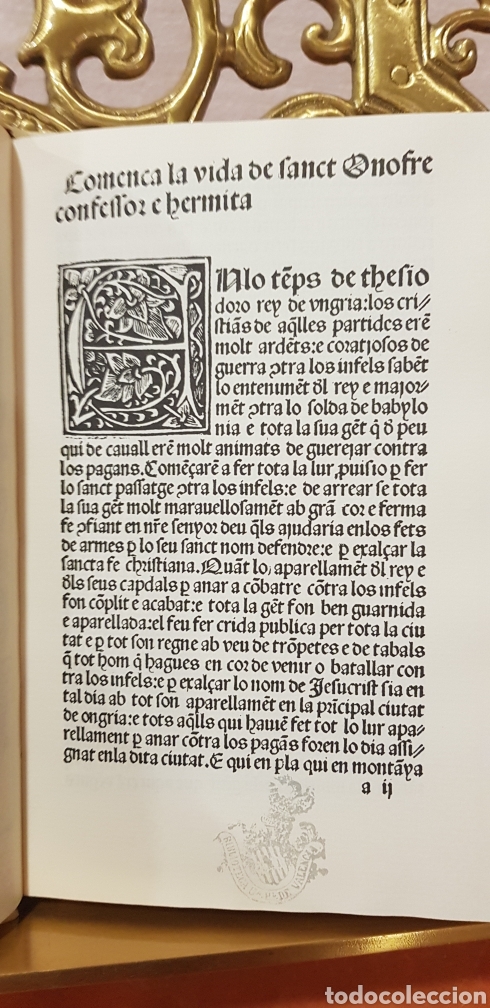 Comenca la vida de sanct Onofre
confessor e hermita
ENlo tẽps de thesio
doro rey de vngria: los cri/
stiãs de aq̃lles partides erẽ
molt ardẽts: e coratjosos de
guerra ↄtra los infels sabẽt
lo entenimẽt d̃l rey e major/
mẽt ↄtra lo solda de babylo
nia e tota la sua gẽt q̃ d̃ peu
qui de cauall erẽ molt animats de guerejar contra
los pagans. Comẽçarẽ a fer tota la lur, puisio ꝑ fer
lo sanct passatge ↄtra los infels: e de arrear se tota
la sua gẽt molt marauellosamẽt ab grã cor e ferma
fe ↄfiant en nr̃e senyor deu q̃ls ajudaria enlos fets
de armes ꝑ lo seu sanct nom defendre: e ꝑ exalçar la
sancta fe christiana. Quãt lo, aparellamẽt d̃l rey e
d̃ls seus capdals ꝑ anar a cõbatre cõtra los infels
fon cõplit e acabat: e tota la gẽt fon ben guarnida
e aparellada: el feu fer crida publica per tota la ciu
tat e ꝑ tot son regne ab veu de trõpetes e de tabals
q̃ tot hom q̃ hagues en cor de venir o batallar con
tra los infels: e ꝑ exalçar lo nom de Jesucrist sia en
tal dia ab tot son aparellamẽt en la pricipal ciutat
de ongria: e tots aq̃lls qui hauiẽ fet tot lo lur apa/
rellament ꝑ anar cõtra los pagãs foren lo dia assi/
gnat enla dita ciutat. E qui en pla qui en montãya
a ij
todocoleccion